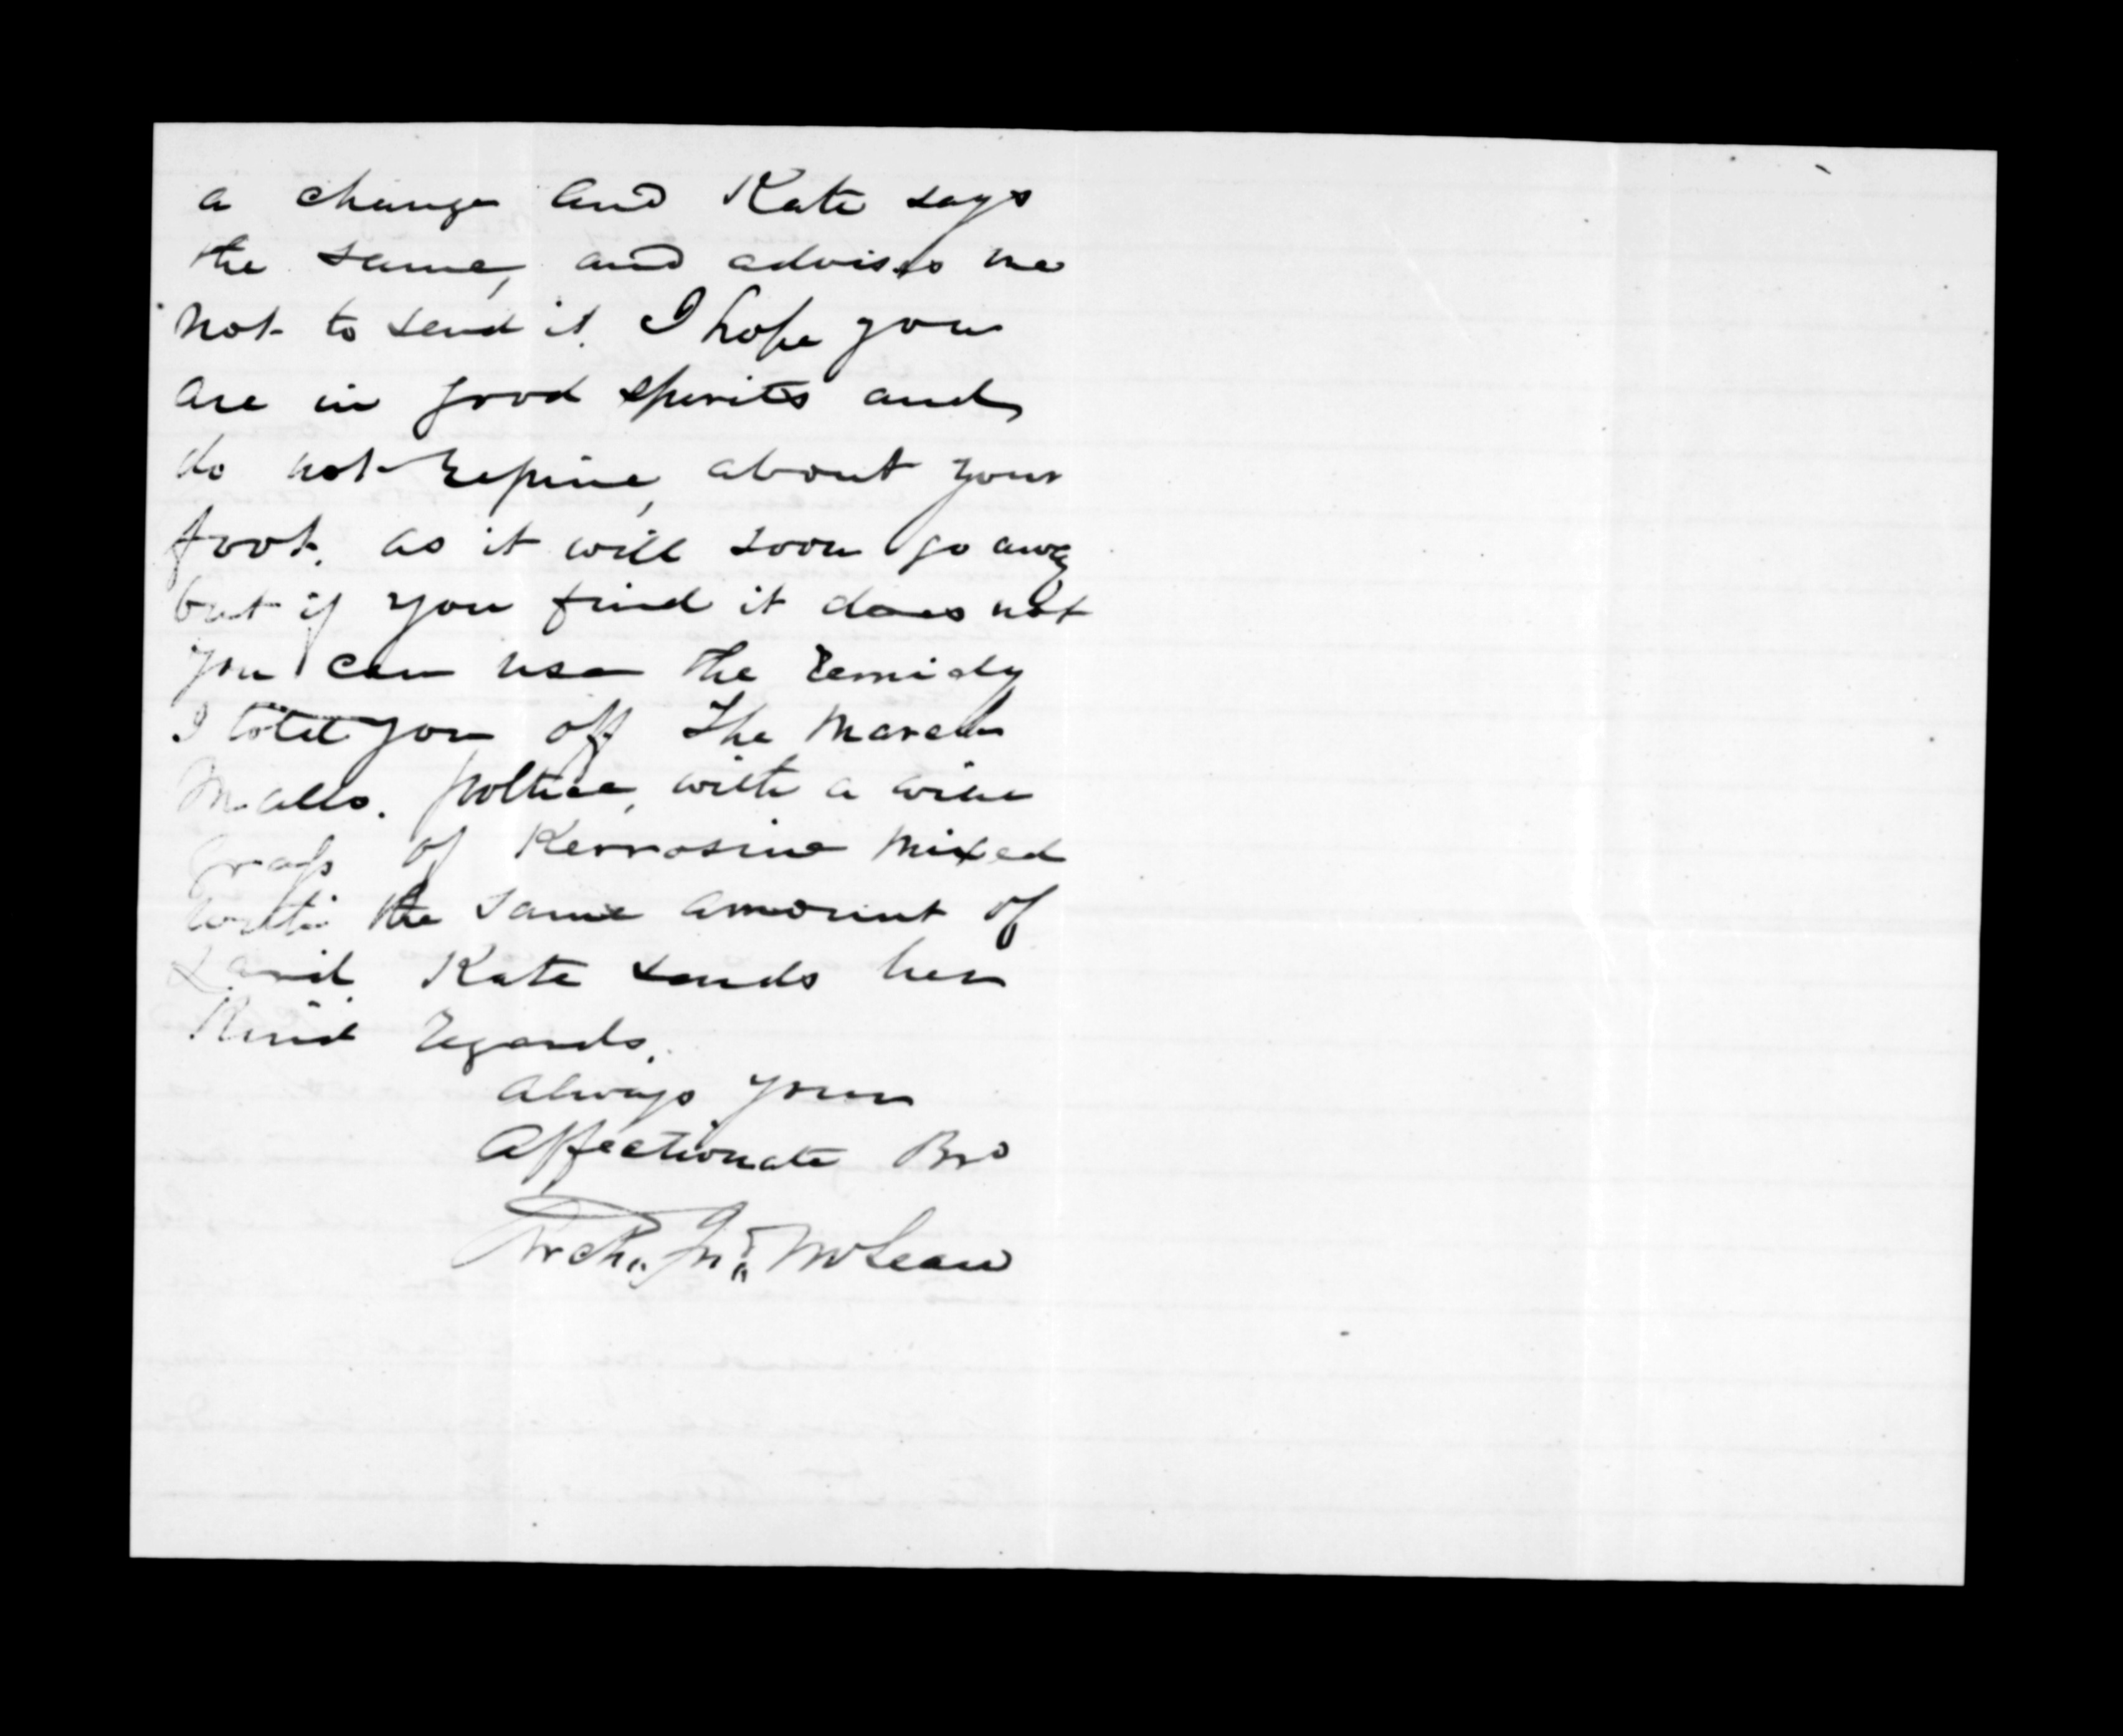 a change and Kate says
the same, and advises me
not to send it. I hope you
are in good spirits and
do not repine, about your
foot. as it will soon go away
but if you find it does not
you can use the remidy
I told you off the Marsh
Malls. poltice, with a wine
Glass of Kerrosine mixed
with the same amount of
Lard Kate sends her
Kind regards.
Always your
Affectionate Bro
Archd. Jno. McLean